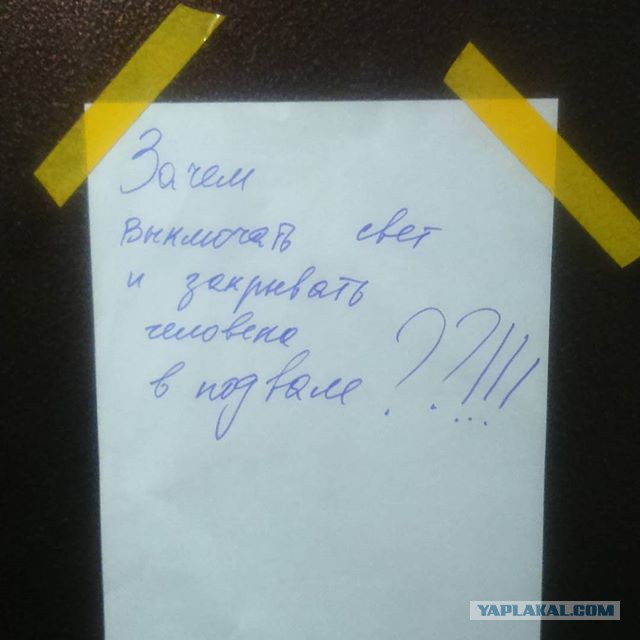 Зачем
выключать свет
и закрывать
человека
в подвале ??!!!
YAPLAKAL.COM